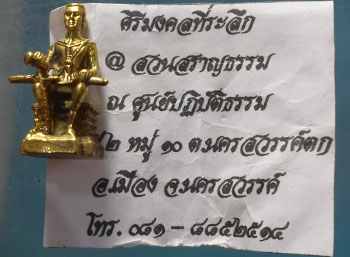 ศิริมงคลที่ระลึก
@ สวนสราญธรรม
ณ ศูนย์ปฏิบัติธรรม
๒ หมู่ ๑๐ ต.นครสวรรค์ตก
อ.เมือง จ.นครสวรรค์
โทร. ๐๘๑ - ๘๘๕๒๕๑๔